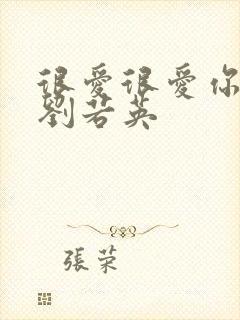 很愛很愛你
劉若英
張荣